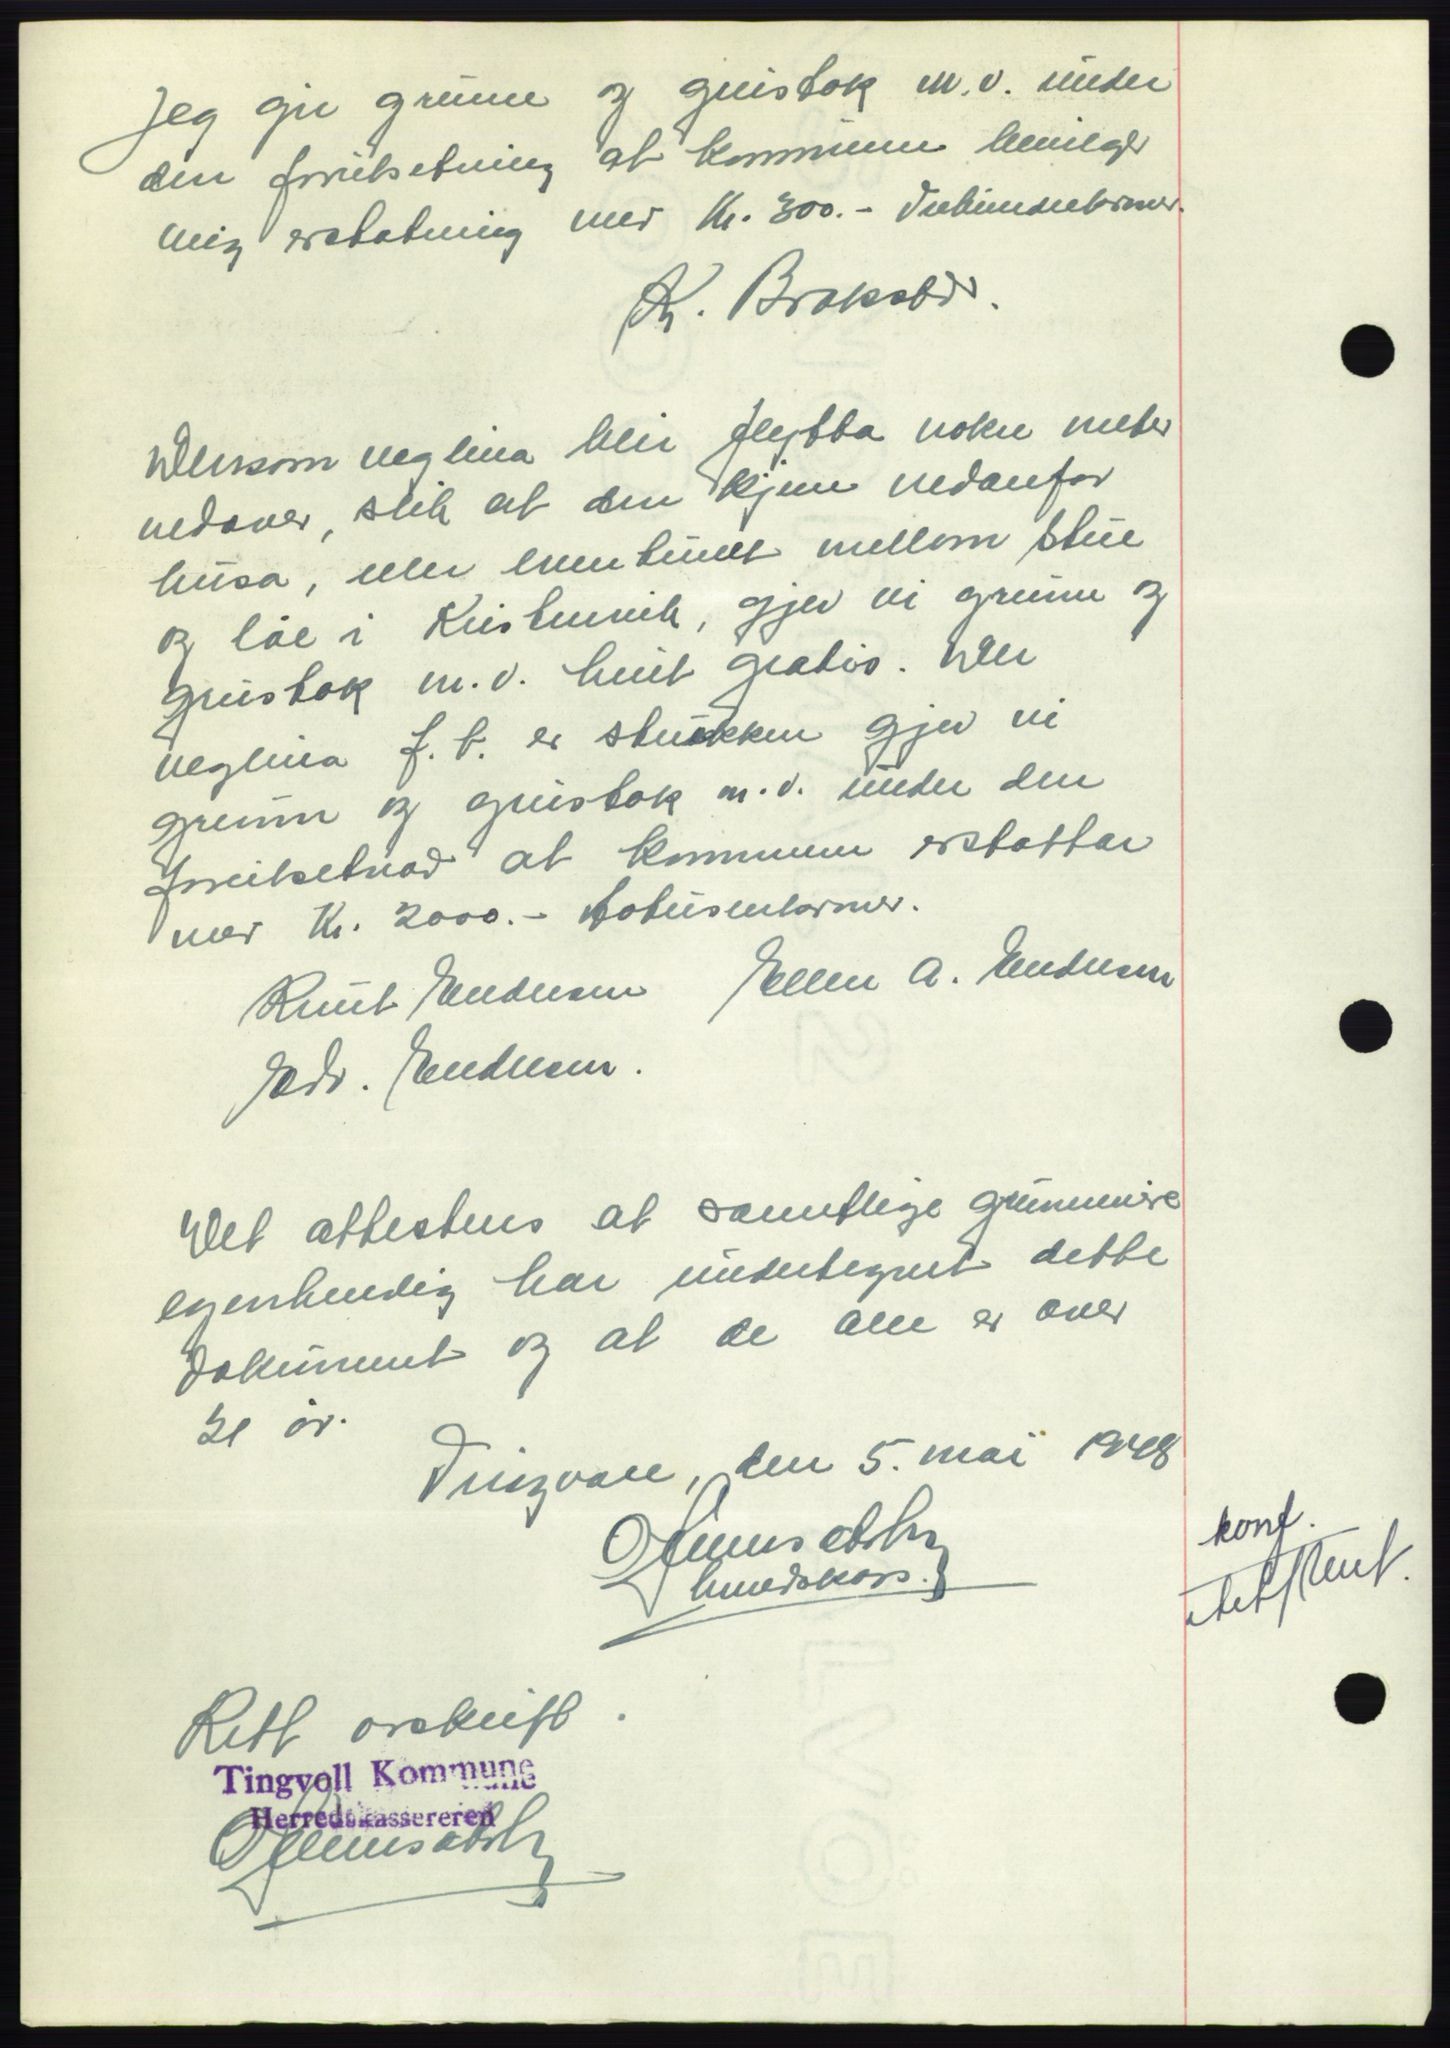 Jeg gir grunn og grustak m.v. under
den forutsetning at kommunen bevilger
meg erstatning med Kr. 300.- Trehundrekroner.
K. Braksted.
Dersom veglina blir flytta nokre meter
nedover, slik at den kjem nedanfor
husa, eller eventuelt mellom stue
og låe i Kristenvik, gjev vi grunn og
grustak m.v. heilt gratis. Der
veglina f.t. er stukken gjev vi
grunn og grustak m.v. under den
forutsetnad at kommunen erstattar
med Kr. 2000.- totusenkroner.
Knut Endresen Ellen A. Endresen
Edv. Endresen.
Det attesteres at samtlige grunneiere
egenhendig har undertegnet dette
dokument og at de alle er over
21 år.
Tingvoll, den 5. mai 1948
herredskass.
konf.
Rett avskrift.
Tingvoll Kommune
Herredskassereren